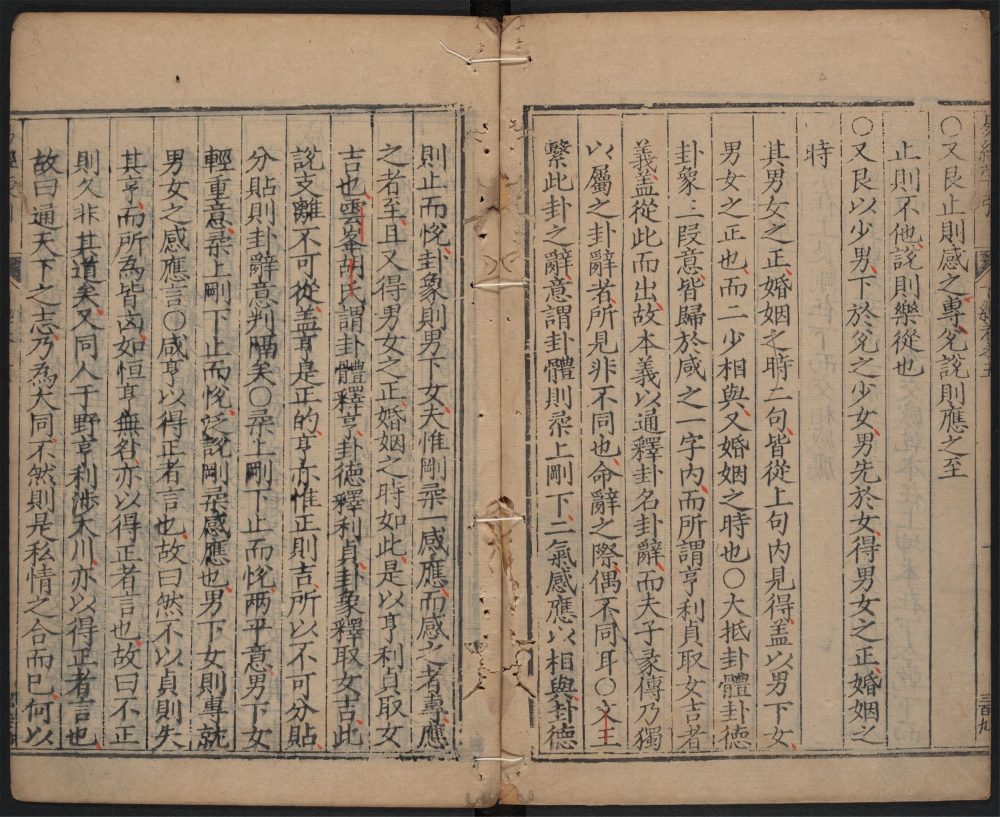 ○又艮止則感之專兊說則應之至
止則不他說則樂從也
○又艮以少男下於兊之少女男先於女得男女之正婚姻之
時
其男女之正婚姻之時二句皆從上句内見得盖以男下女
男女之正也而二少相與又婚姻之時也○大抵卦體卦德
卦象三段意皆歸於咸之一字内而所謂亨利貞取女吉者
義盖從此而出故本義以通釋卦名卦辭而夫子彖傳乃獨
以屬之卦辭者所見非不同也命辭之際偶不同耳○文王
繫此卦之辭意謂卦體則柔上剛下二氣感應以相與卦德
則止而悅卦象則男下女夫惟剛柔一感應而感之者專應
之者至且又得男女之正婚姻之時如此是以亨利貞取女
吉也雲峯胡氏謂卦體釋亨卦德釋利貞卦象釋取女吉此
說支離不可從盖亨是正的亨亦惟正則吉所以不可分貼
分貼則卦辭意判隔矣○柔上剛下止而悅兩平意男下女
輕重意柔上剛下止而悅泛說剛柔感應也男下女則專就
男女之感應言○咸亨以得正者言也故曰然不以貞則失
其亨而所為皆凶如恒亨無咎亦以得正者言也故曰不正
則久非其道矣又同人于野亨利涉大川亦以得正者言也
故曰通天下之志乃為大同不然則是私情之合而已何以
三百九